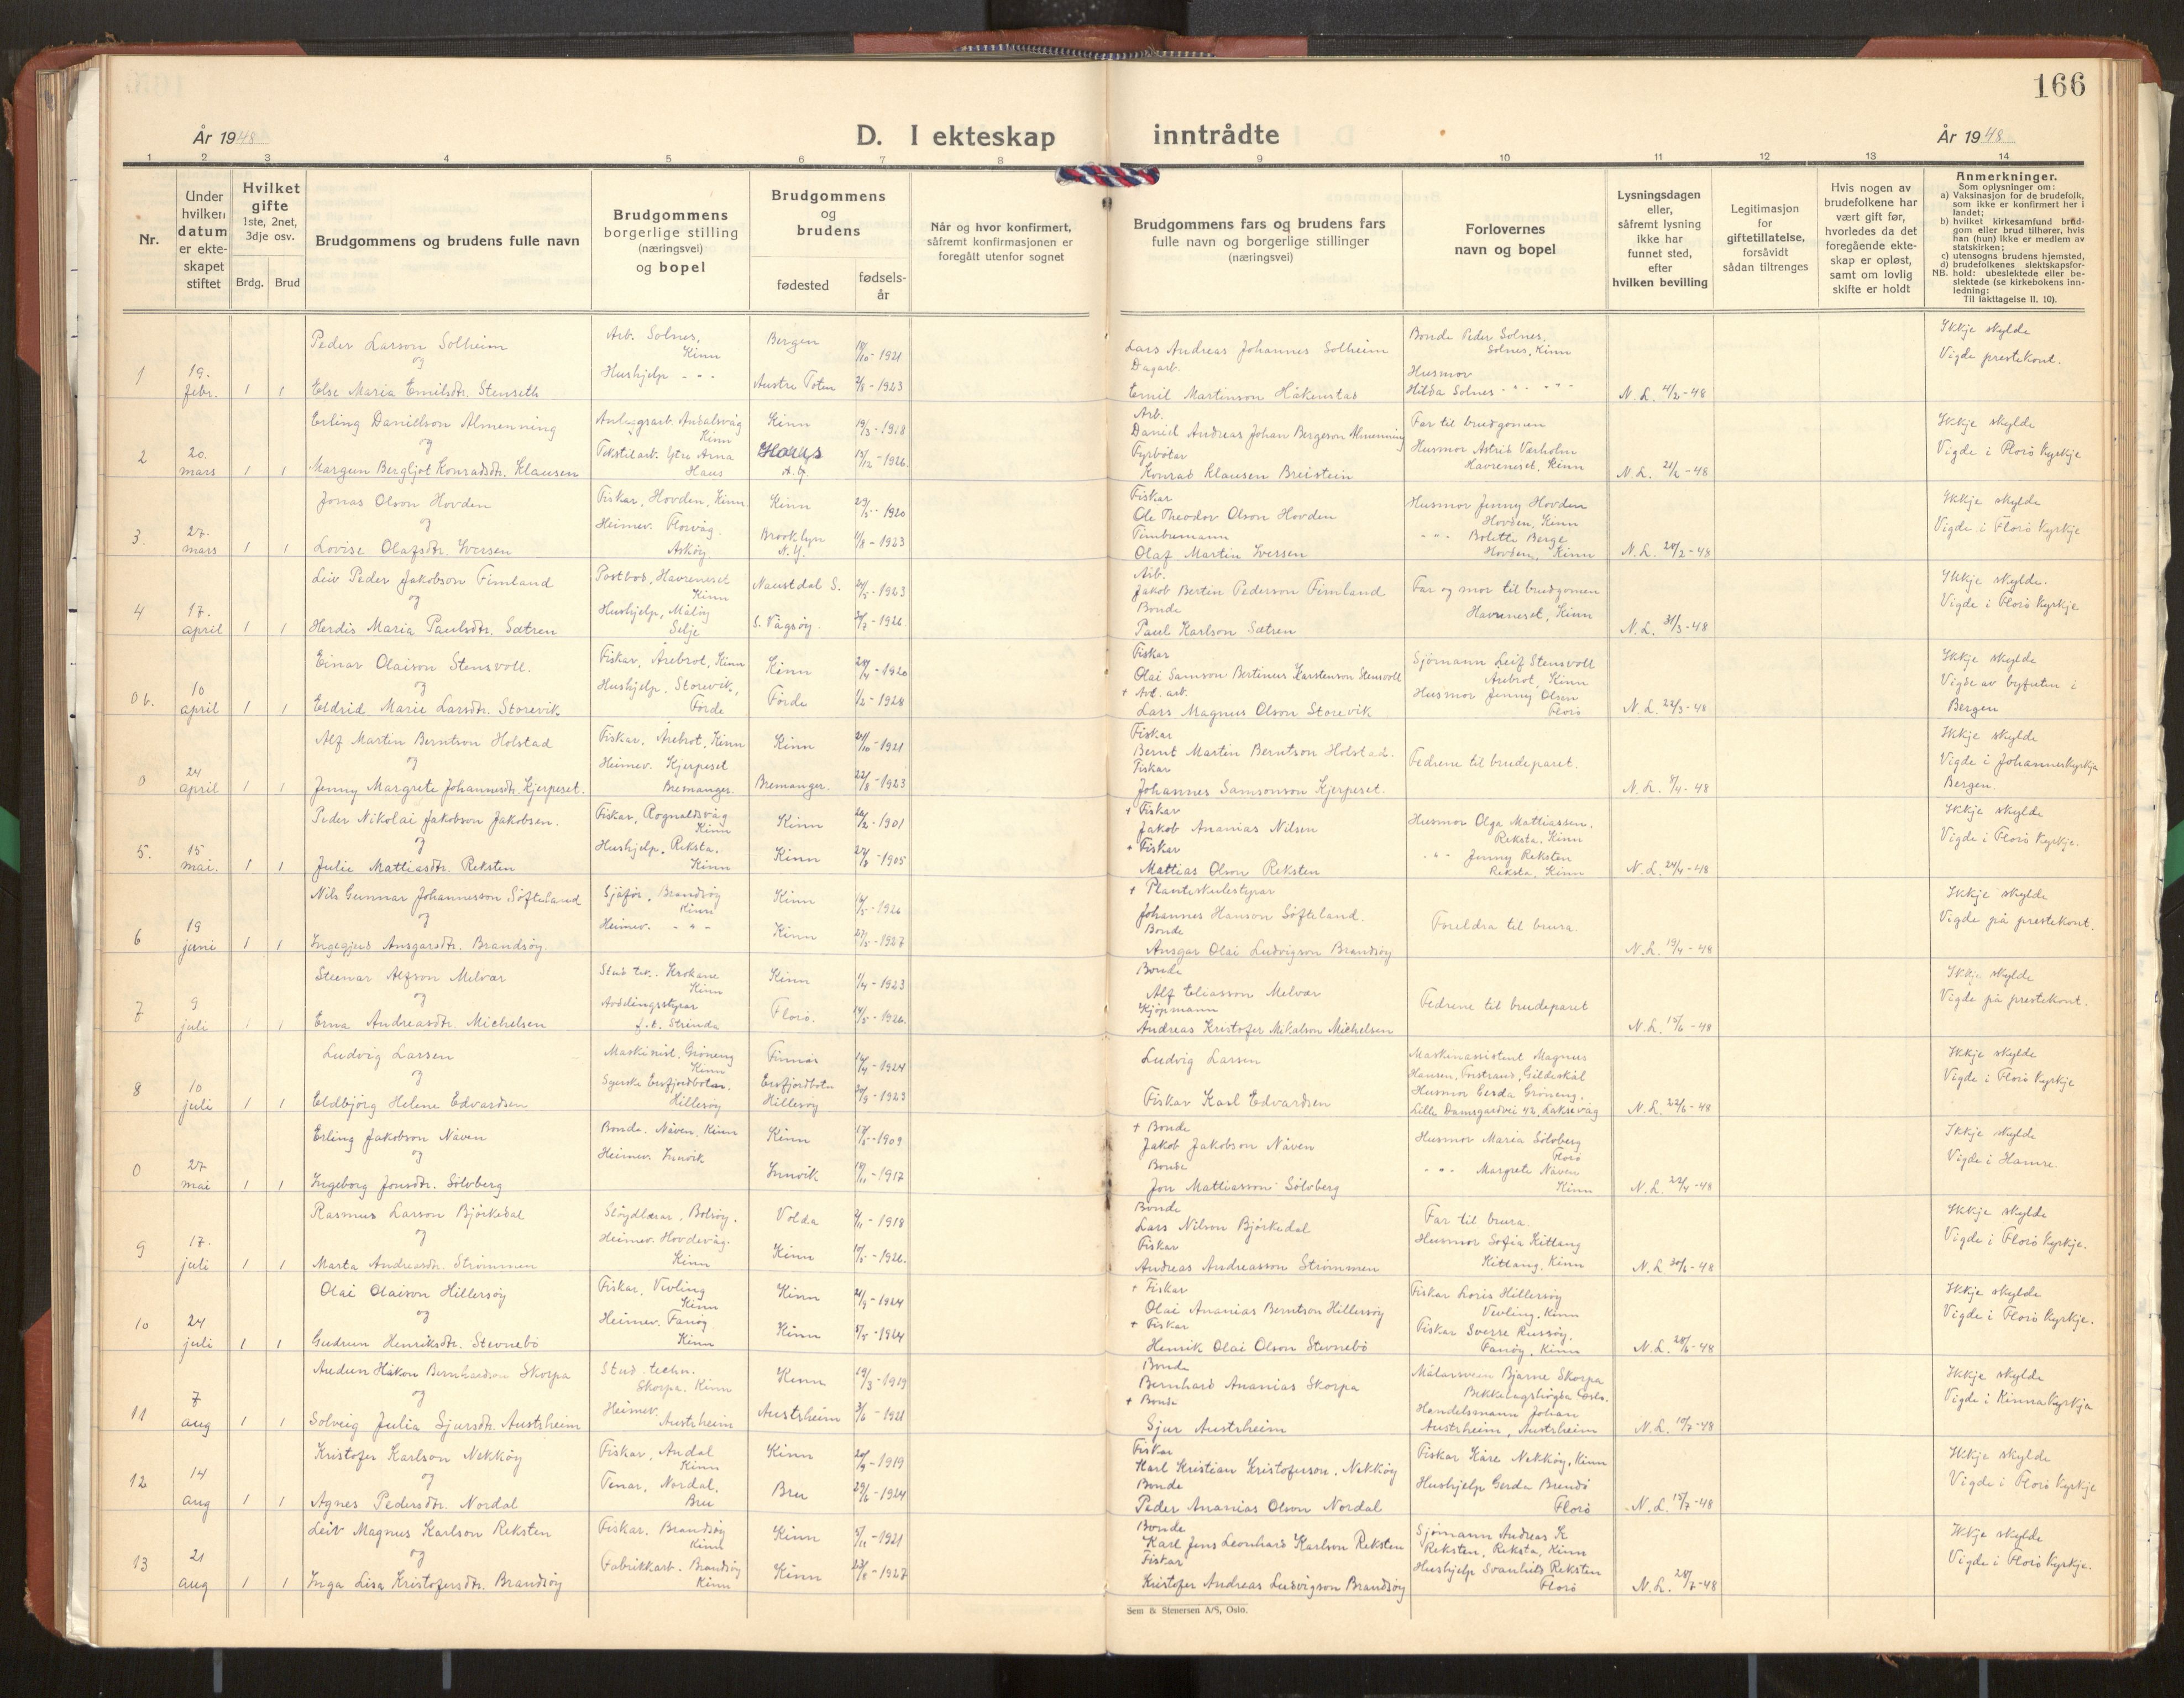 166
År 1948
D. I ekteskap inntrådte
År 1948
1 2 3 4 5 6 7 8 9 10 11 12 13 14
Nr.
Under hvilken datum er ekteskapet stiftet
Hvilket gifte 1ste, 2net, 3dje osv.
Brdg. Brud
Brudgommens og brudens fulle navn
Brudgommens borgerlige stilling (næringsvei) og bopel
Brudgommens og brudens
fødested
fødselsår
Når og hvor konfirmert, såfremt konfirmasjonen er foregått utenfor sognet
Brudgommens fars og brudens fars fulle navn og borgerlige stillinger (næringsvei)
Forlovernes navn og bopel
Lysningsdagen eller, såfremt lysning ikke har funnet sted, efter hvilken bevilling
Legitimasjon for giftetillatelse, forsåvidt sådan tiltrenges
Hvis nogen av brudefolkene har vært gift før, hvorledes da det foregående ekteskap er opløst, samt om lovlig skifte er holdt
Anmerkninger.
Som oplysninger om:
a) Vaksinasjon for de brudefolk, som ikke er konfirmert her i landet;
b) hvilket kirkesamfund brudgom eller brud tilhører, hvis han (hun) ikke er medlem av statskirken;
c) utensogns brudens hjemsted,
d) brudefolkenes slektskapsforhold: ubeslektede eller beslektede (se kirkebokens innledning:
NB.
Til iakttagelse II. 10).
1 19. febr. 1 1
Peder Larson Solheim
og
Else Maria Emilsdtr. Stenseth
Arb. Solnes, Kinn
Hushjelp - " -
Bergen 1921
Austre Toten 1923
Lars Andreas Johannes Solheim
Dagarb.
Emil Martinson Håkenstad
Bonde Peder Solnes, Solnes, Kinn
Husmor Hilda Solnes - " - " -
N. L. 4/2-48
Ikkje skylde
Vigde prestekont.
2 20. mars 1 1
Erling Danielson Almenning
og
Margun Bergljot Konradsdtr. Klausen
Anleggsarb. Andalsvåg Kinn
Tekstilarb. Ytre Arna Haus
Kinn 19/3-1918
Haus 13/12-1926
Arb.
Daniel Andreas Johan Bergeson Almenning
Fyrbøtar
Konrad Klausen Breistein
Far til brudgomen
Husmor Astrid Værholm
Havreneset, Kinn
N. L. 21/2-48
Ikkje skylde
Vigde i Florø Kyrkje
3. 27. mars 1 1
Jonas Olson Hovden
og
Lovise Olafsdtr. Iversen
Fiskar, Hovden, Kinn
Heimev. Florvåg. Askøy
Kinn 1920
Brooklyn N.Y. 1923
Fiskar
Ole Theodor Olson Hovden
Tømbermann
Olaf Martin Iversen
Husmor Jenny Hovden
Hovden, Kinn
- " - Bolette Berge
Hovden, Kinn
N. L. 28/2-48
Ikkje skylde
Vigde i Florø Kyrkje
4 17. april 1 1
Leiv Peder Jakobson Fimland
og
Herdis Maria Paulsdtr. Sætren
Postbod, Havreneset Kinn
Hushjelp, Måløy Selje
Naustdal S. 1923
S. Vågsøy. 1926
Arb.
Jakob Bertin Pederson Fimland
Bonde
Paul Karlson Sætren
Far og mor til brudgomen
Havreneset, Kinn
N. L. 31/3-48
Ikkje skylde.
Vigde i Florø Kyrkje
0 b. 10 april 1 1
Einar Olaison Stensvoll.
og
Eldrid Marie Larsdtr. Storevik
Fiskar, Årebrot, Kinn
Hushjelp. Storevik, Førde
Kinn 1920
Førde 1/2-1928
Fiskar
Olai Samson Bertinus Karstenson Stensvoll
+ Avt. arb.
Lars Magnus Olson Storevik
Sjømann Leif Stensvoll
Årebrot, Kinn
Husmor Jenny Olsen
Florø
N. L. 22/3-48
Ikkje skylde
Vigde av byfuten i
Bergen
0 24 april 1 1
Alf Martin Berntson Holstad
og
Jenny Margrete Johannesdtr. Kjerpeset.
Fiskar, Årebrot, Kinn
Heimev. Kjerpeset Bremanger.
Kinn 1921
Bremanger. 22/8-1923
Fiskar
Bernt Martin Berntson Holstad.
Fiskar
Johannes Samsonson Kjerpeset.
Fedrene til brudeparet.
N. L. 8/4-48
Ikkje skylde
Vigde i Johanneskyrkja
Bergen.
5. 15 mai. 1 1
Peder Nikolai Jakobson Jakobsen.
og
Julie Mattiasdtr. Reksten
Fiskar, Rognaldsvåg Kinn
Hushjelp, Reksta, Kinn
Kinn 1901
Kinn 1905
+ Fiskar
Jakob Ananias Nilsen
+ Fiskar
Mattias Olson Reksten
Husmor Olga Mattiassen.
Reksta, Kinn
- " - Jenny Reksten
Reksta, Kinn
N. L. 24/4-48
Ikkje skylde
Vigde i Florø Kyrkje.
6 19 juni 1 1
Nils Gunnar Johannesson Søfteland
og
Ingegjerd Ansgarsdtr. Brandsøy.
Sjåfør, Brandsøy Kinn
Heimev. - " -
Kinn 1926
Kinn 27/5-1927
+ Planteskulestyrar
Johannes Hanson Søfteland.
Bonde
Ansgar Olai Ludvigson Brandsøy
Foreldra til brura.
N. L. 19/4-48
Ikkje skylde
Vigde på prestekont.
7 9 juli 1 1
Steinar Alfson Melvær
og
Erna Andreasdtr. Michelsen
Stud. tek. Krokane Kinn
Avdelingsstyrar f.t. Strinda
Kinn 1/4-1923
Florø. 14/5-1926.
Bonde
Alf Eliasson Melvær
Kjøpmann
Andreas Kristofer Mikalson Michelsen
Fedrene til brudeparet
N. L. 15/6-48
Ikkje skylde
Vigde på prestekont.
8 10 juli 1 1
Ludvig Larsen
og
Eldbjørg Helene Edvardsen
Maskinist, Grøneng Kinn
Syerske Ersfjordbotn. Hillesøy
1924
Ersfjordbotn Hillesøy 1923
Ludvig Larsen
Fiskar Karl Edvardsen
Maskinassistent Magnus
Hansen, Forstrand, Gildeskål
Husmor Gerda Grøneng,
Lille Damsgårdvei 42, Laksevåg
N. L. 22/6-48
Ikkje skylde
Vigde i Florø Kyrkje
0 27 mai 1 1
Erling Jakobson Nåven
og
Ingeborg Jonsdtr. Sølvberg
Bonde. Nåven, Kinn
Heimev. Innvik
Kinn 1909
Innvik 1917
+ Bonde
Jakob Jakobson Nåven
Bonde
Jon Mattiasson Sølvberg
Husmor Maria Sølvberg
Florø
- " - Margrete Nåven
Kinn
N. L. 22/4-48
Ikkje skylde
Vigde i Hamre.
9 17. juli 1 1
Rasmus Larson Bjørkedal
og
Marta Andreasdtr. Strømmen
Sløydlærar, Bolsøy.
Heimev. Hovdevåg. Kinn
Volda 1918
Kinn 1926.
Bonde
Lars Nilson Bjørkedal
Fiskar
Andreas Andreasson Strømmen
Far til brura.
Husmor Sofia Kittang
Kittang, Kinn
N. L. 30/6-48
Ikkje skylde
Vigde i Florø Kyrkje.
10 24 juli 1 1
Olai Olaison Hillersøy
og
Gudrun Henriksdtr. Stevnebø
Fiskar, Vevling Kinn
Heimev. Fanøy Kinn
Kinn 1924
Kinn 1924
+ Fiskar
Olai Ananias Berntson Hillersøy
+ Fiskar
Henrik Olai Olson Stevnebø
Fiskar Loris Hillersøy
Vevling, Kinn
Fiskar Sverre Russøy.
Fanøy, Kinn
N. L. 28/6-48
Ikkje skylde
Vigde i Florø Kyrkje.
11 7 aug 1 1
Audun Håkon Bernhardson Skorpa
og
Solveig Julia Sjursdtr. Austrheim
Stud. techn. Skorpa. Kinn
Heimev. Austrheim
Kinn 19/3-1919
Austrheim 3/6-1921
Bonde
Bernhard Ananias Skorpa
+ Bonde
Sjur Austrheim
Målarsvein Bjarne Skorpa
Bekkelagshøgda Oslo.
Handelsmann Johan
Austrheim, Austrheim
N. L. 10/7-48
Ikkje skylde
Vigde i Kinnakyrkja
12 14 aug 1 1
Kristofer Karlson Nekkøy
og
Agnes Pedersdtr. Nordal
Fiskar, Andal Kinn
Tenar, Nordal, Bru
Kinn 1919
Bru 29/6-1924
Fiskar
Karl Kristian Kristoferson. Nekkøy
Bonde
Peder Ananias Olson Nordal
Fiskar Kåre Nekkøy, Kinn
Hushjelp Gerda Brendø
Florø
N. L. 15/7-48
Ikkje skylde
Vigde i Florø Kyrkje
13 21 aug 1 1
Leiv Magnus Karlson Reksten
og
Inga Lisa Kristofersdtr. Brandsøy
Fiskar. Brandsøy Kinn
Fabrikkarb. Brandsøy Kinn
Kinn 1921
Kinn 1927
Bonde
Karl Jens Leonhard Karlson Reksten
Fiskar
Kristofer Andreas Ludvigson Brandsøy
Sjømann Andreas K
Reksten, Reksta, Kinn
Hushjelp Svanhild Reksten
Florø
N. L. 28/7-48
Ikkje skylde
Vigde i Florø Kyrkje.
Sem & Stenersen A/S, Oslo.